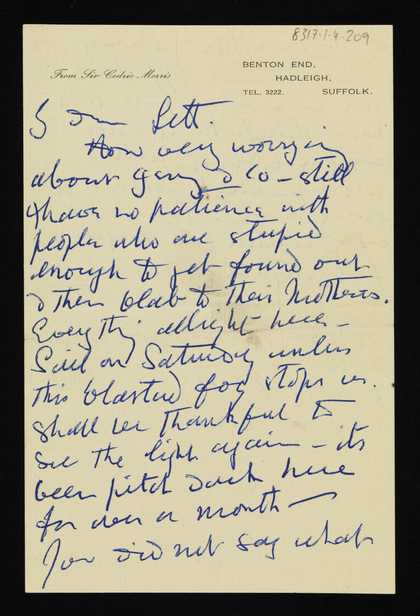 8317·1·4·209
From Sir Cedric Morris
BENTON END,
HADLEIGH,
TEL. 3222. SUFFOLK.
Lett.
How very worrying
about Gerry & Co – still
I have no patience with
people who are stupid
enough to get found out
& then blab to their Mothers.
Everything allright here –
Sail on Saturday unless
this blasted fog stops us.
Shall be thankful to
see the light again – its
been pitch dark here
for over a month –
You did not say what